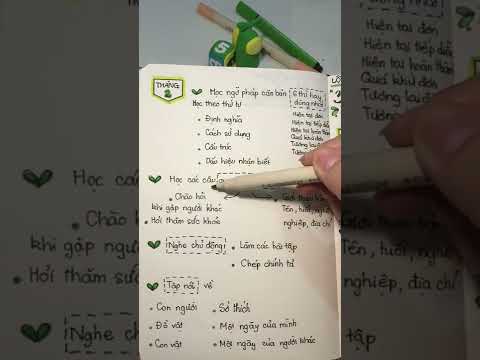 THÁNG
2
Học ngữ pháp căn bản
6 thì hay
dùng nhất
Học theo thứ tự
• Định nghĩa
• Cách sử dụng
• Cấu trúc
• Dấu hiệu nhận biết
Hiện tại đơn
Hiện tại tiếp
Hiện tại hoàn
Quá khứ đơn
Tương lai
dùng nhất
Hiện tại đơn
Hiện tại tiếp diễn
Hiện tại hoàn thành
Quá khứ đơn
Tương lai đơn
Học các câu
• Chào hỏi
khi gặp người khác
• Hỏi thăm sức khỏe
Tên, tuổi,
nghiệp, địa chỉ
• Chào
khi gặp
• Hỏi thăm
Tên, tuổi,
nghiệp, địa chỉ
Nghe chủ động
• Làm các bài tập
• Chép chính tả
Tập nói về
• Con người
• Đồ vật
• Con vật
• Sở thích
• Một ngày của mình
• Một ngày của người khác
Nghe